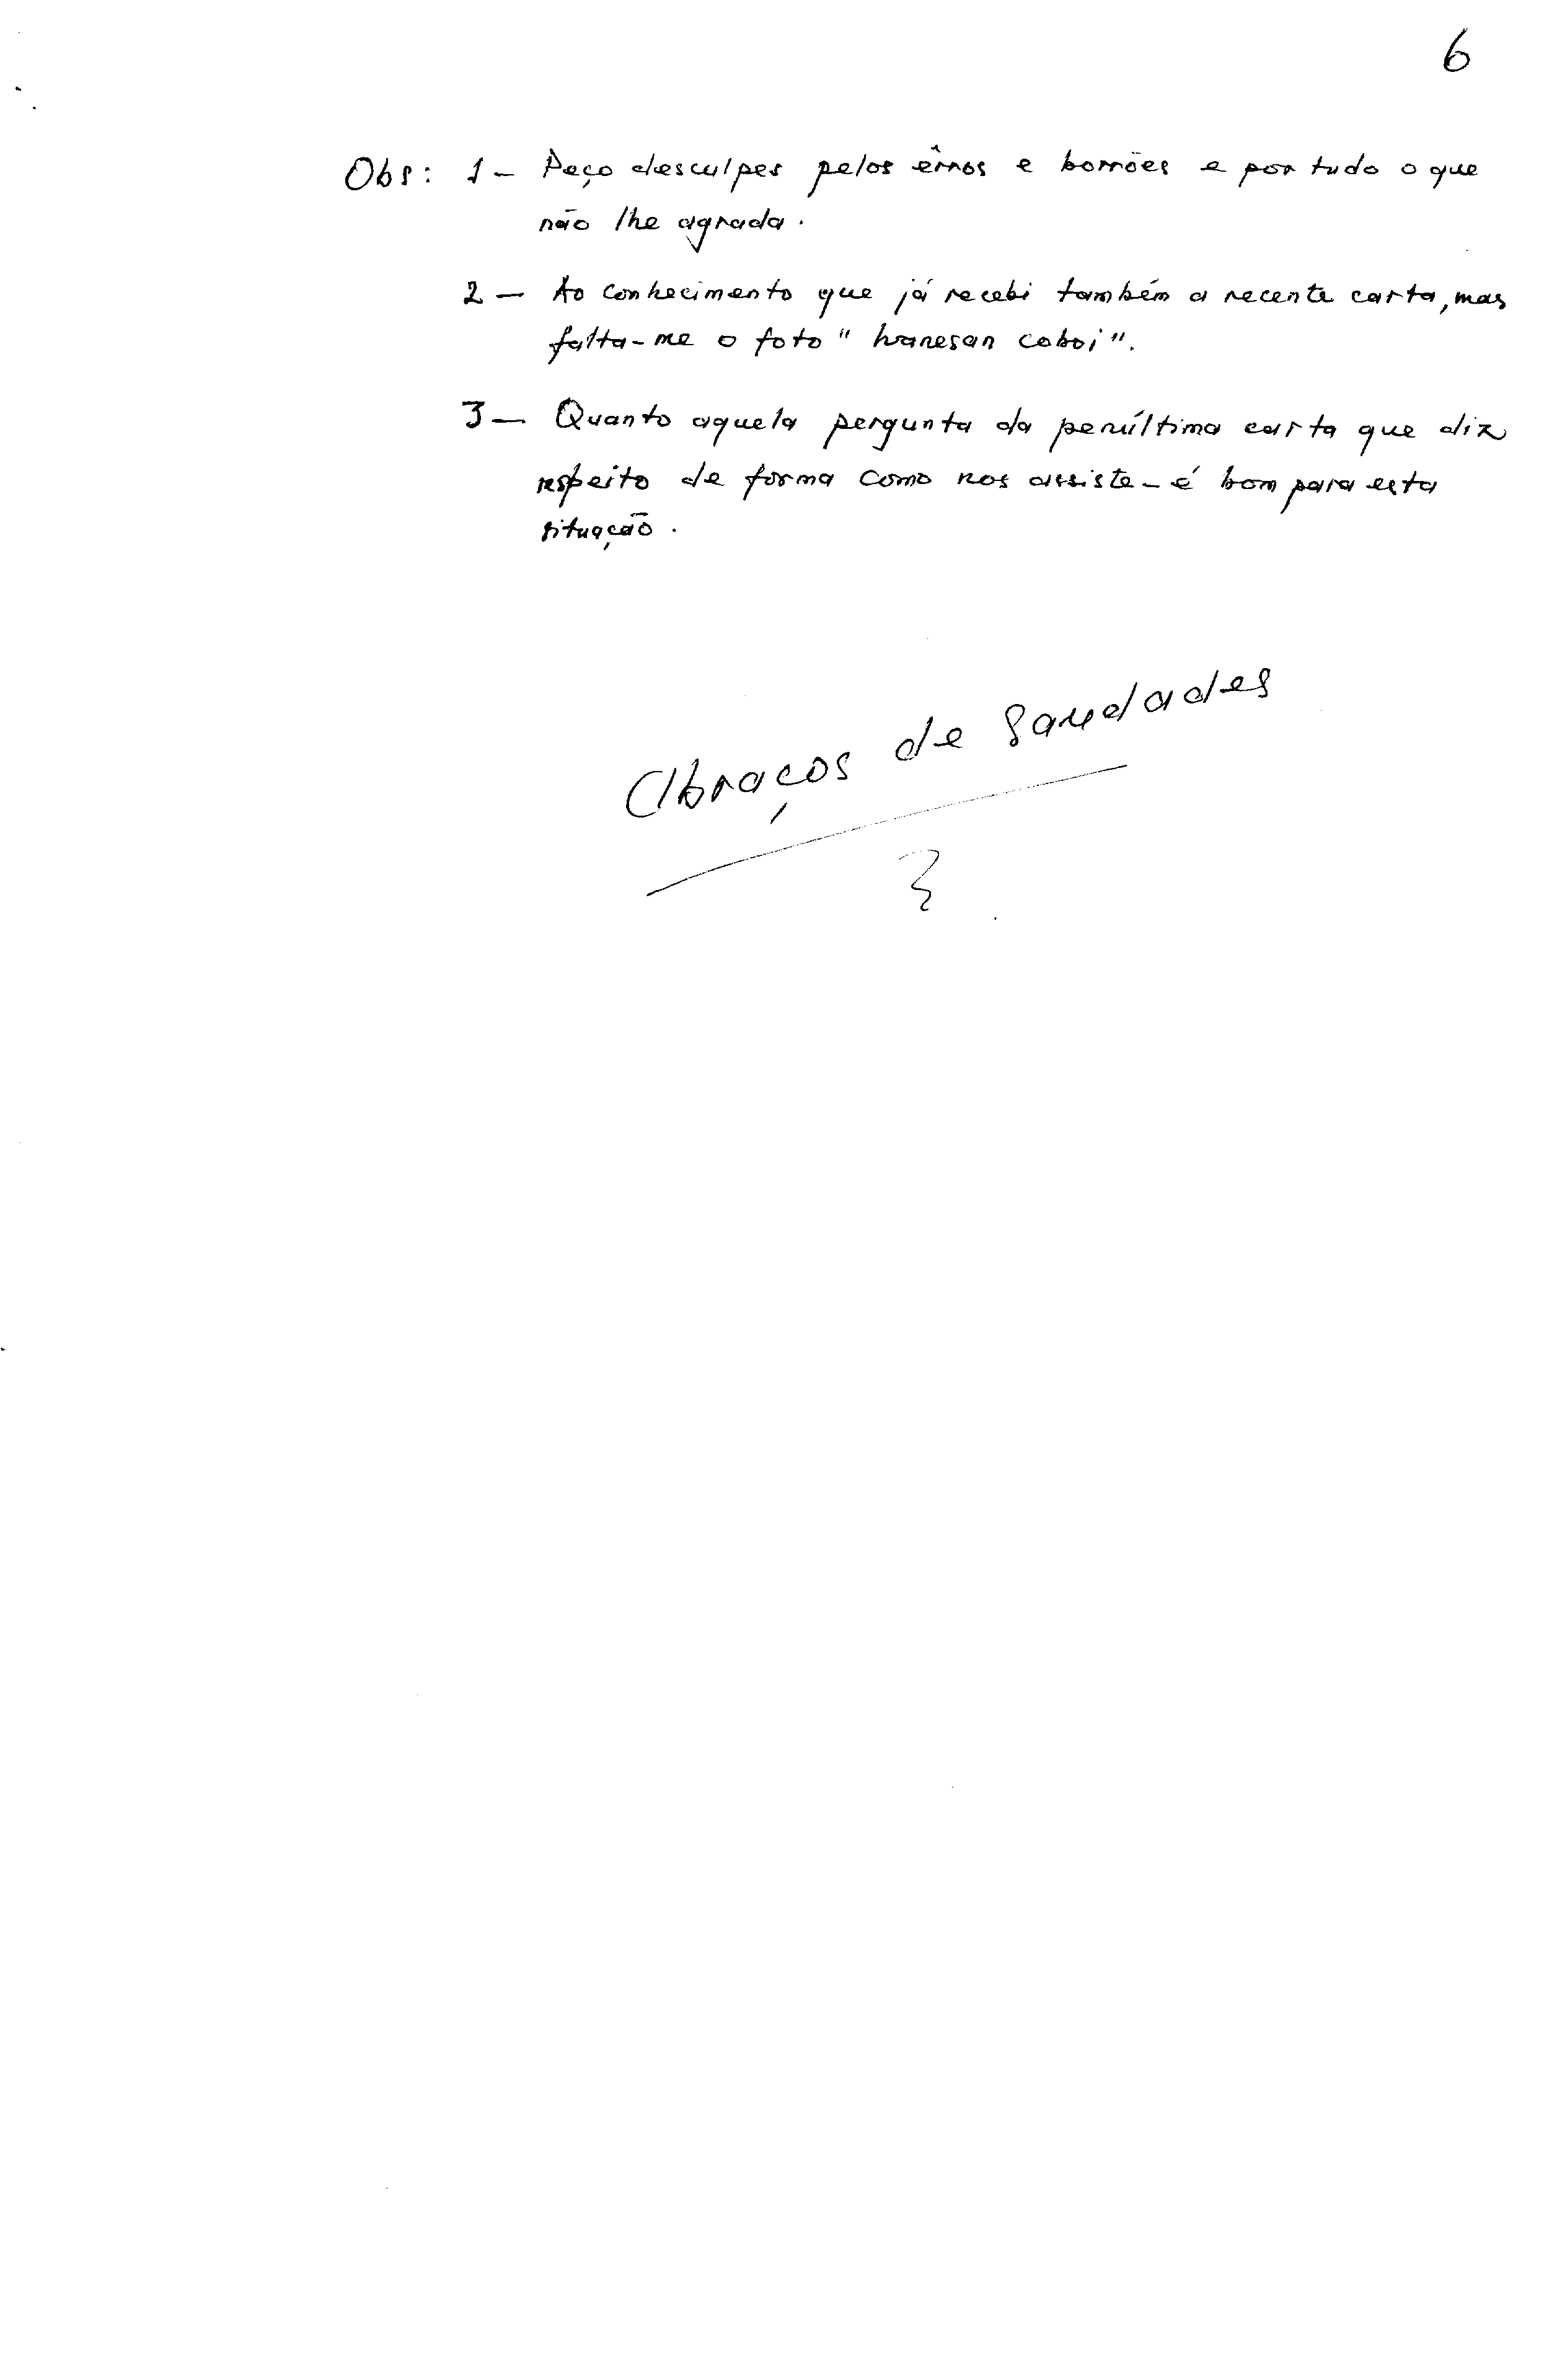 6
Obs: 1 - Peço desculpes pelos êrros e borrões e por tudo o que
não lhe agrada.
2 - Ao conhecimento que já recebi também a recente carta, mas
falta-me o foto "hanesan coboi".
3 - Quanto aquela pergunta da penúltima carta que diz
respeito de forma como nos assiste - é bom para esta
situação.
Abraços de Saudades